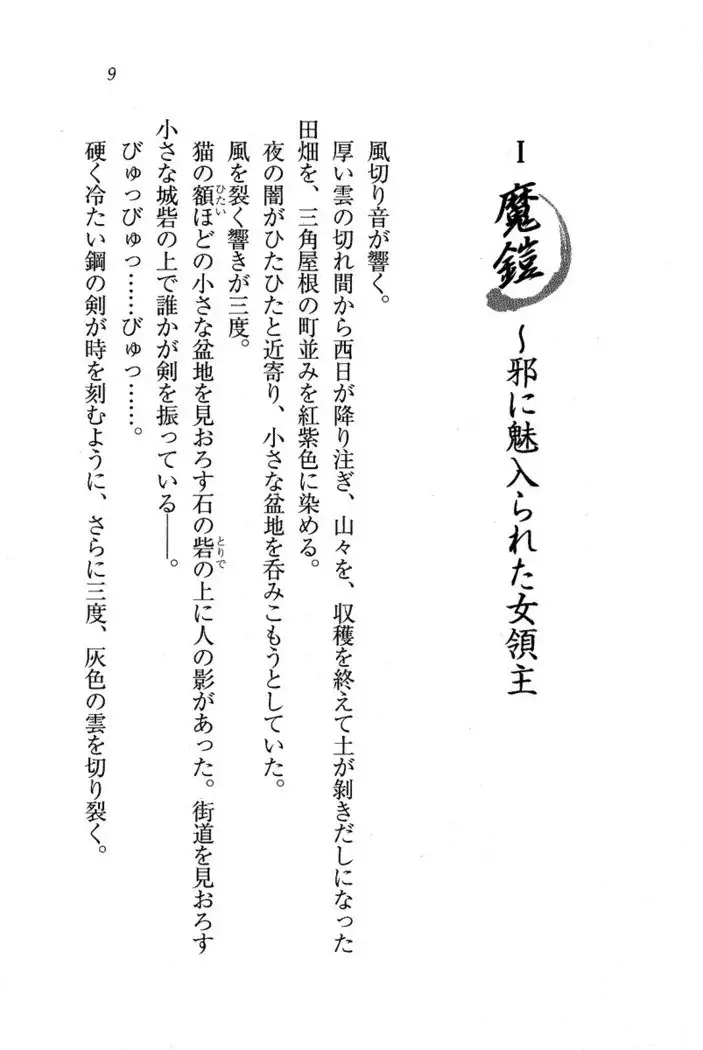 9
I 魔鎧 ~邪に魅入られた女領主
風切り音が響く。
厚い雲の切れ間から西日が降り注ぎ、山々を、収穫を終えて土が剝きだしになった
田畑を、三角屋根の町並みを紅紫色に染める。
夜の闇がひたひたと近寄り、小さな盆地を呑みこもうとしていた。
風を裂く響きが三度。
猫の額ひたいほどの小さな盆地を見おろす石の砦とりでの上に人の影があった。街道を見おろす
小さな城砦の上で誰かが剣を振っている——。
びゅっびゅっ……びゅっ……。
硬く冷たい鋼の剣が時を刻むように、さらに三度、灰色の雲を切り裂く。